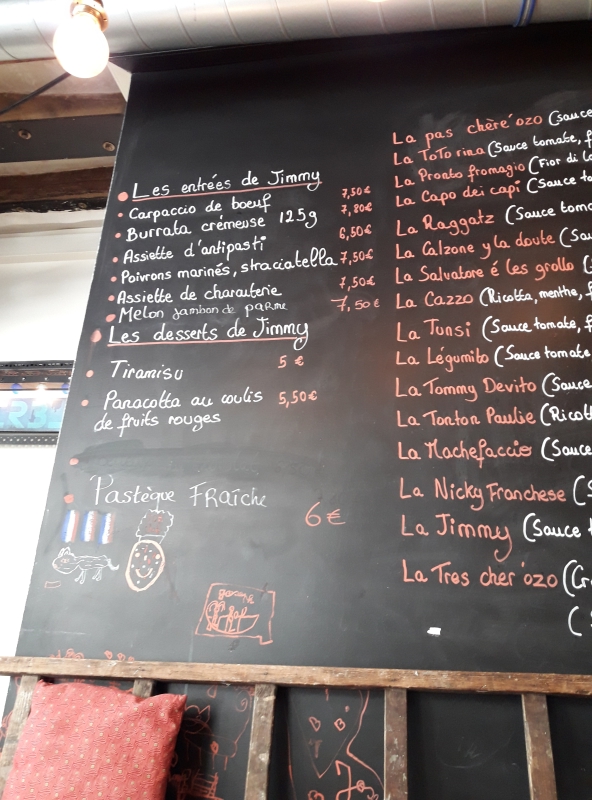 Les entrées de Jimmy
Carpaccio de boeuf 7,50€
Burrata crémeuse 125g 7,80€
Assiette d'antipasti 6,50€
Poivrons marinés, straciatella 7,50€
Assiette de charcuterie 7,50€
Melon jambon de parme 7,50€
Les desserts de Jimmy
Tiramisu 5€
Panacotta au coulis 5,50€
de fruits rouges
Pastèque FRAîche 6€
La pas chère'ozo (Sauce
La ToTo rina (Sauce tomate, f
La Pronto fromagio (Fior di
La Capo dei capi (Sauce
La Raggatz (Sauce
La Calzone y la doute
La Salvatore é les grollo
La Cazzo (Ricotta, menthe, f
La Tunsi (Sauce tomate, f
La Légumito (Sauce tomate
La Tommy Devito (Sauce
La Tonton Paulie
La Machefaccio (Sauce
La Nicky Franchese (S
La Jimmy (Sauce
La Tres cher'ozo